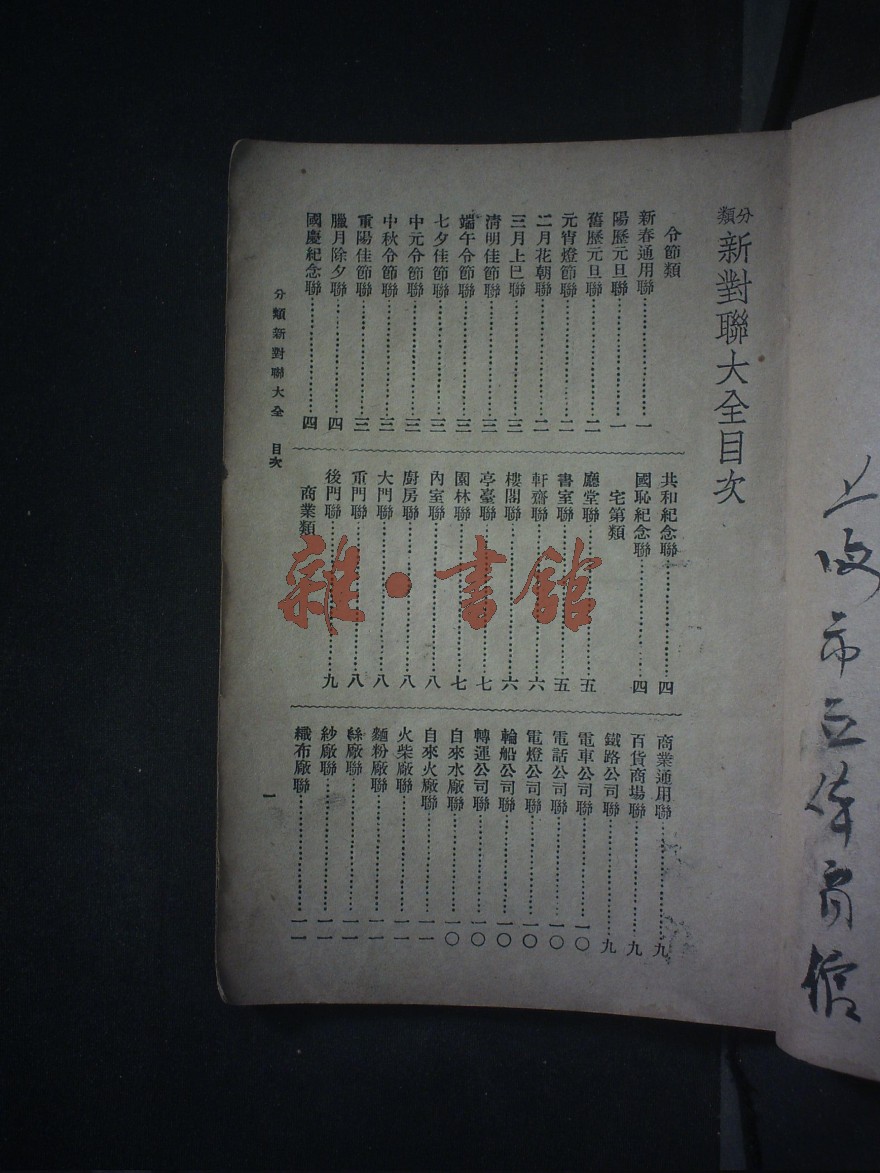 分類新對聯大全目次
令節類
新春通用聯一
陽歷元旦聯一
舊歷元旦聯二
元宵燈節聯二
二月花朝聯二
三月上巳聯三
清明佳節聯三
端午令節聯三
七夕佳節聯三
中元令節聯三
中秋令節聯三
重陽佳節聯三
臘月除夕聯四
國慶紀念聯四
共和紀念聯四
國恥紀念聯四
宅第類
廳堂聯五
書室聯五
軒齋聯六
樓閣聯六
亭臺聯七
園林聯七
內室聯八
廚房聯八
大門聯八
重門聯八
後門聯九
商業類
商業通用聯九
百貨商場聯九
鐵路公司聯九
電車公司聯一〇
電話公司聯一〇
電燈公司聯一〇
輪船公司聯一〇
轉運公司聯一〇
自來水廠聯一〇
自來火廠聯一一
火柴廠聯一一
麵粉廠聯一一
絲廠聯一一
紗廠聯一一
織布廠聯一一
分類新對聯大全 目次
一
上海市立体育館
雜·書館